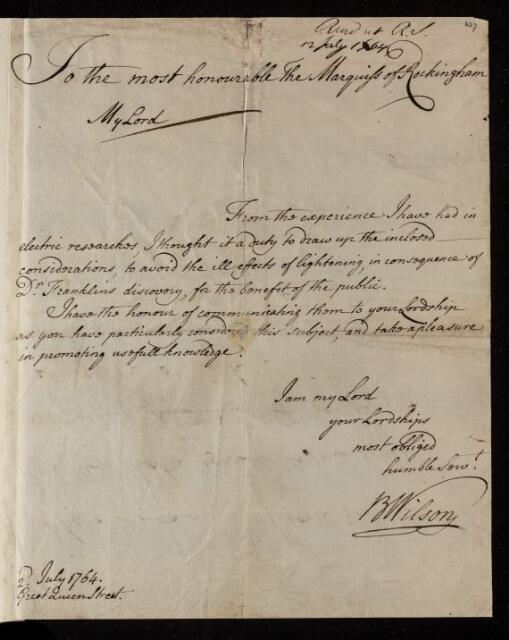 227
Read at R.S.
12 July 1764
To the most honourable The Marquiss of Rockingham
My Lord
From the experience I have had in
electric researches, I thought it a duty to draw up the inclosed
considerations, to avoid the ill effects of lightening, in consequence of
Dr. Franklins discovery, for the benefit of the public.
I have the honour of communicating them to your Lordship
as you have particularly considered this subject, and take a pleasure
in promoting usefull knowledge
I am my Lord
your Lordships
most obliged
humble Servt.
B Wilson
2. July 1764.
Great Queen Street.